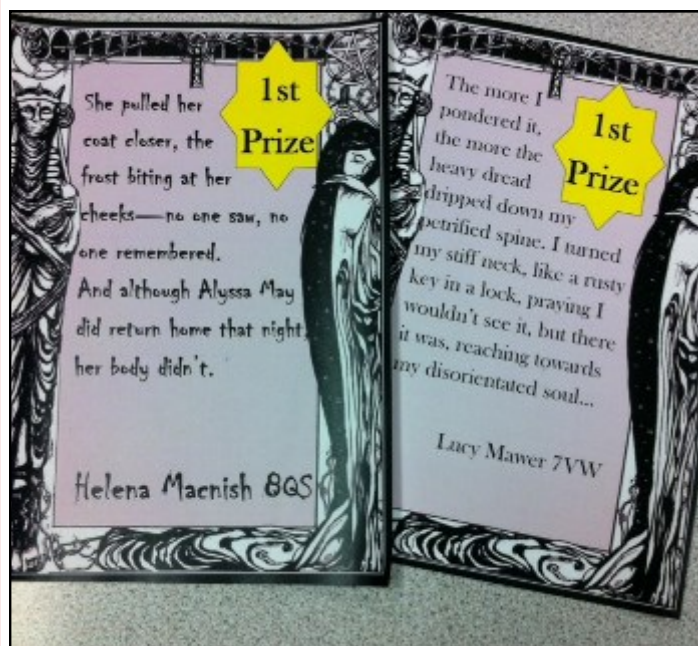 She pulled her
coat closer, the
frost biting at her
cheeks—no one saw, no
one remembered.
And although Alyssa May
did return home that night,
her body didn't.
Helena Macnish 8QS
1st
Prize
The more I
pondered it,
the more the
heavy dread
dripped down my
petrified spine. I turned
my stiff neck, like a rusty
key in a lock, praying I
wouldn't see it, but there
it was, reaching towards
my disorientated soul...
Lucy Mawer 7VW
1st
Prize